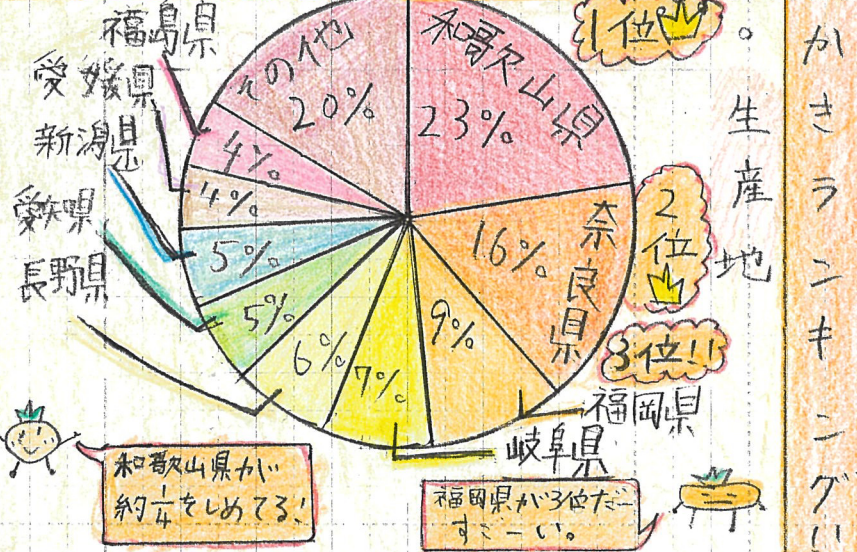 かきランキング!!
。生産地
1位
2位
3位!!
和歌山県
23%
奈良県
16%
福岡県
9%
岐阜県
7%
長野県
6%
愛知県
5%
新潟県
5%
愛媛県
4%
福島県
4%
その他
20%
和歌山県が
約1/4をしめてる!
福岡県が3位だー
すごーい。